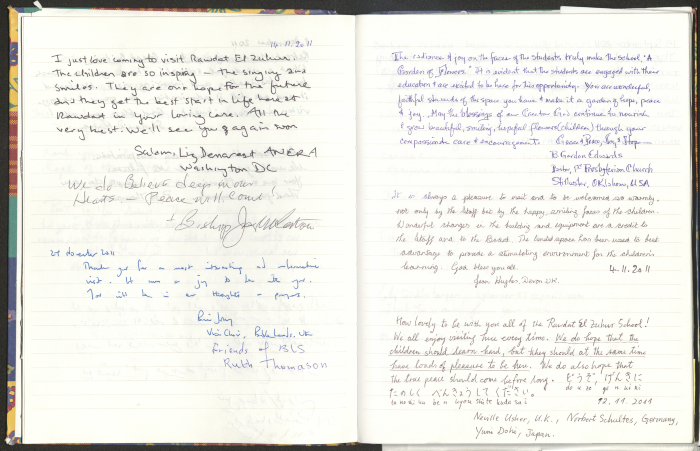 14.11.2011
I just love coming to visit Rawdat El Zuhur
The children are so inspiring – the singing and
smiles. They are our hope for the future
and they get the best start in life here at
Rawdat in your loving care. All the
very best. We'll see you again soon
Salaam, Liz Demarest ANERA
Washington DC
We do Believe deep in our
Hearts – Peace will Come!
+ Bishop
2011
Thank you for a most interesting and informative
visit. It was a joy to be with you.
You will be in our thoughts & prayers.
UK
Friends of BLS
Ruth Thomason
The radiance & joy on the faces of the students truly make this school, "A
Garden of Flowers." It is evident that the students are engaged with their
education & are excited to be here for this opportunity. You are wonderful,
faithful stewards of the space you have & make it a garden of hope, peace
& joy. May the blessings of our Creator God continue to nourish
& grow beautiful, smiling, hopeful flowers (children) through your
compassionate care & encouragement. Grace, Peace, Joy & Hope
B Gordon Edwards
Pastor, 1st Presbyterian Church
Stillwater, Oklahoma, USA
It is always a pleasure to visit and to be welcomed so warmly,
not only by the staff but by the happy, smiling faces of the children.
Wonderful changes in the building and equipment are a credit to
the Staff and to the Board. The limited space has been used to best
advantage to provide a stimulating environment for the children's
learning. God bless you all. 4.11.2011
Jean Hughes, Devon UK.
How lovely to be with you all of the Rawdat El Zuhur School!
We all enjoy visiting here every time. We do hope that the
children should learn hard, but they should at the same time
have loads of pleasure to be here. We do also hope that
the true peace should come before long. どうぞ, げんきに
do u zo ge n ki ni
たのしく べんきょうして ください。
ta no si ku be n kyou shite kuda sai 12.11.2011
Neville Usher, U.K., Norbert Schultes, Germany,
Yumi Dohi, Japan.